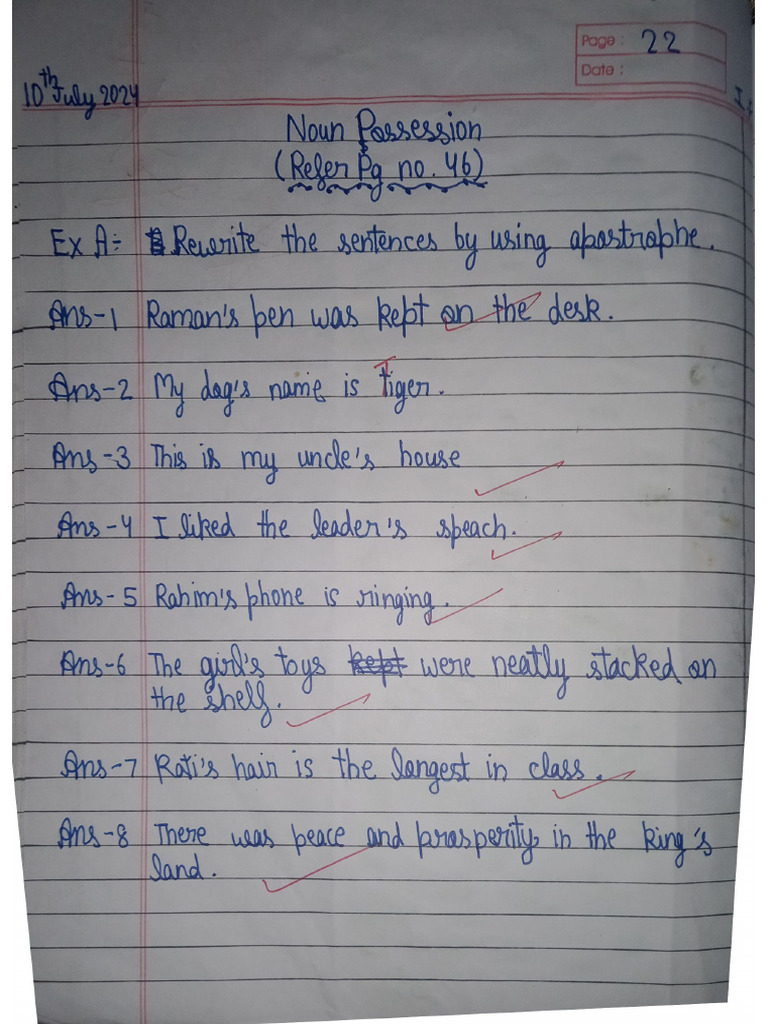 Page : 22
Date :
10th July 2024
Noun Possession
(Refer Pg no. 46)
Ex A:- Rewrite the sentences by using apostrophe.
Ans-1 Raman's pen was kept on the desk.
Ans-2 My dog's name is Tiger.
Ans-3 This is my uncle's house
Ans-4 I liked the leader's speach.
Ans-5 Rahim's phone is ringing.
Ans-6 The girl's toys kept were neatly stacked on
the shelf.
Ans-7 Rati's hair is the longest in class.
Ans-8 There was peace and prosperity in the king's
land.